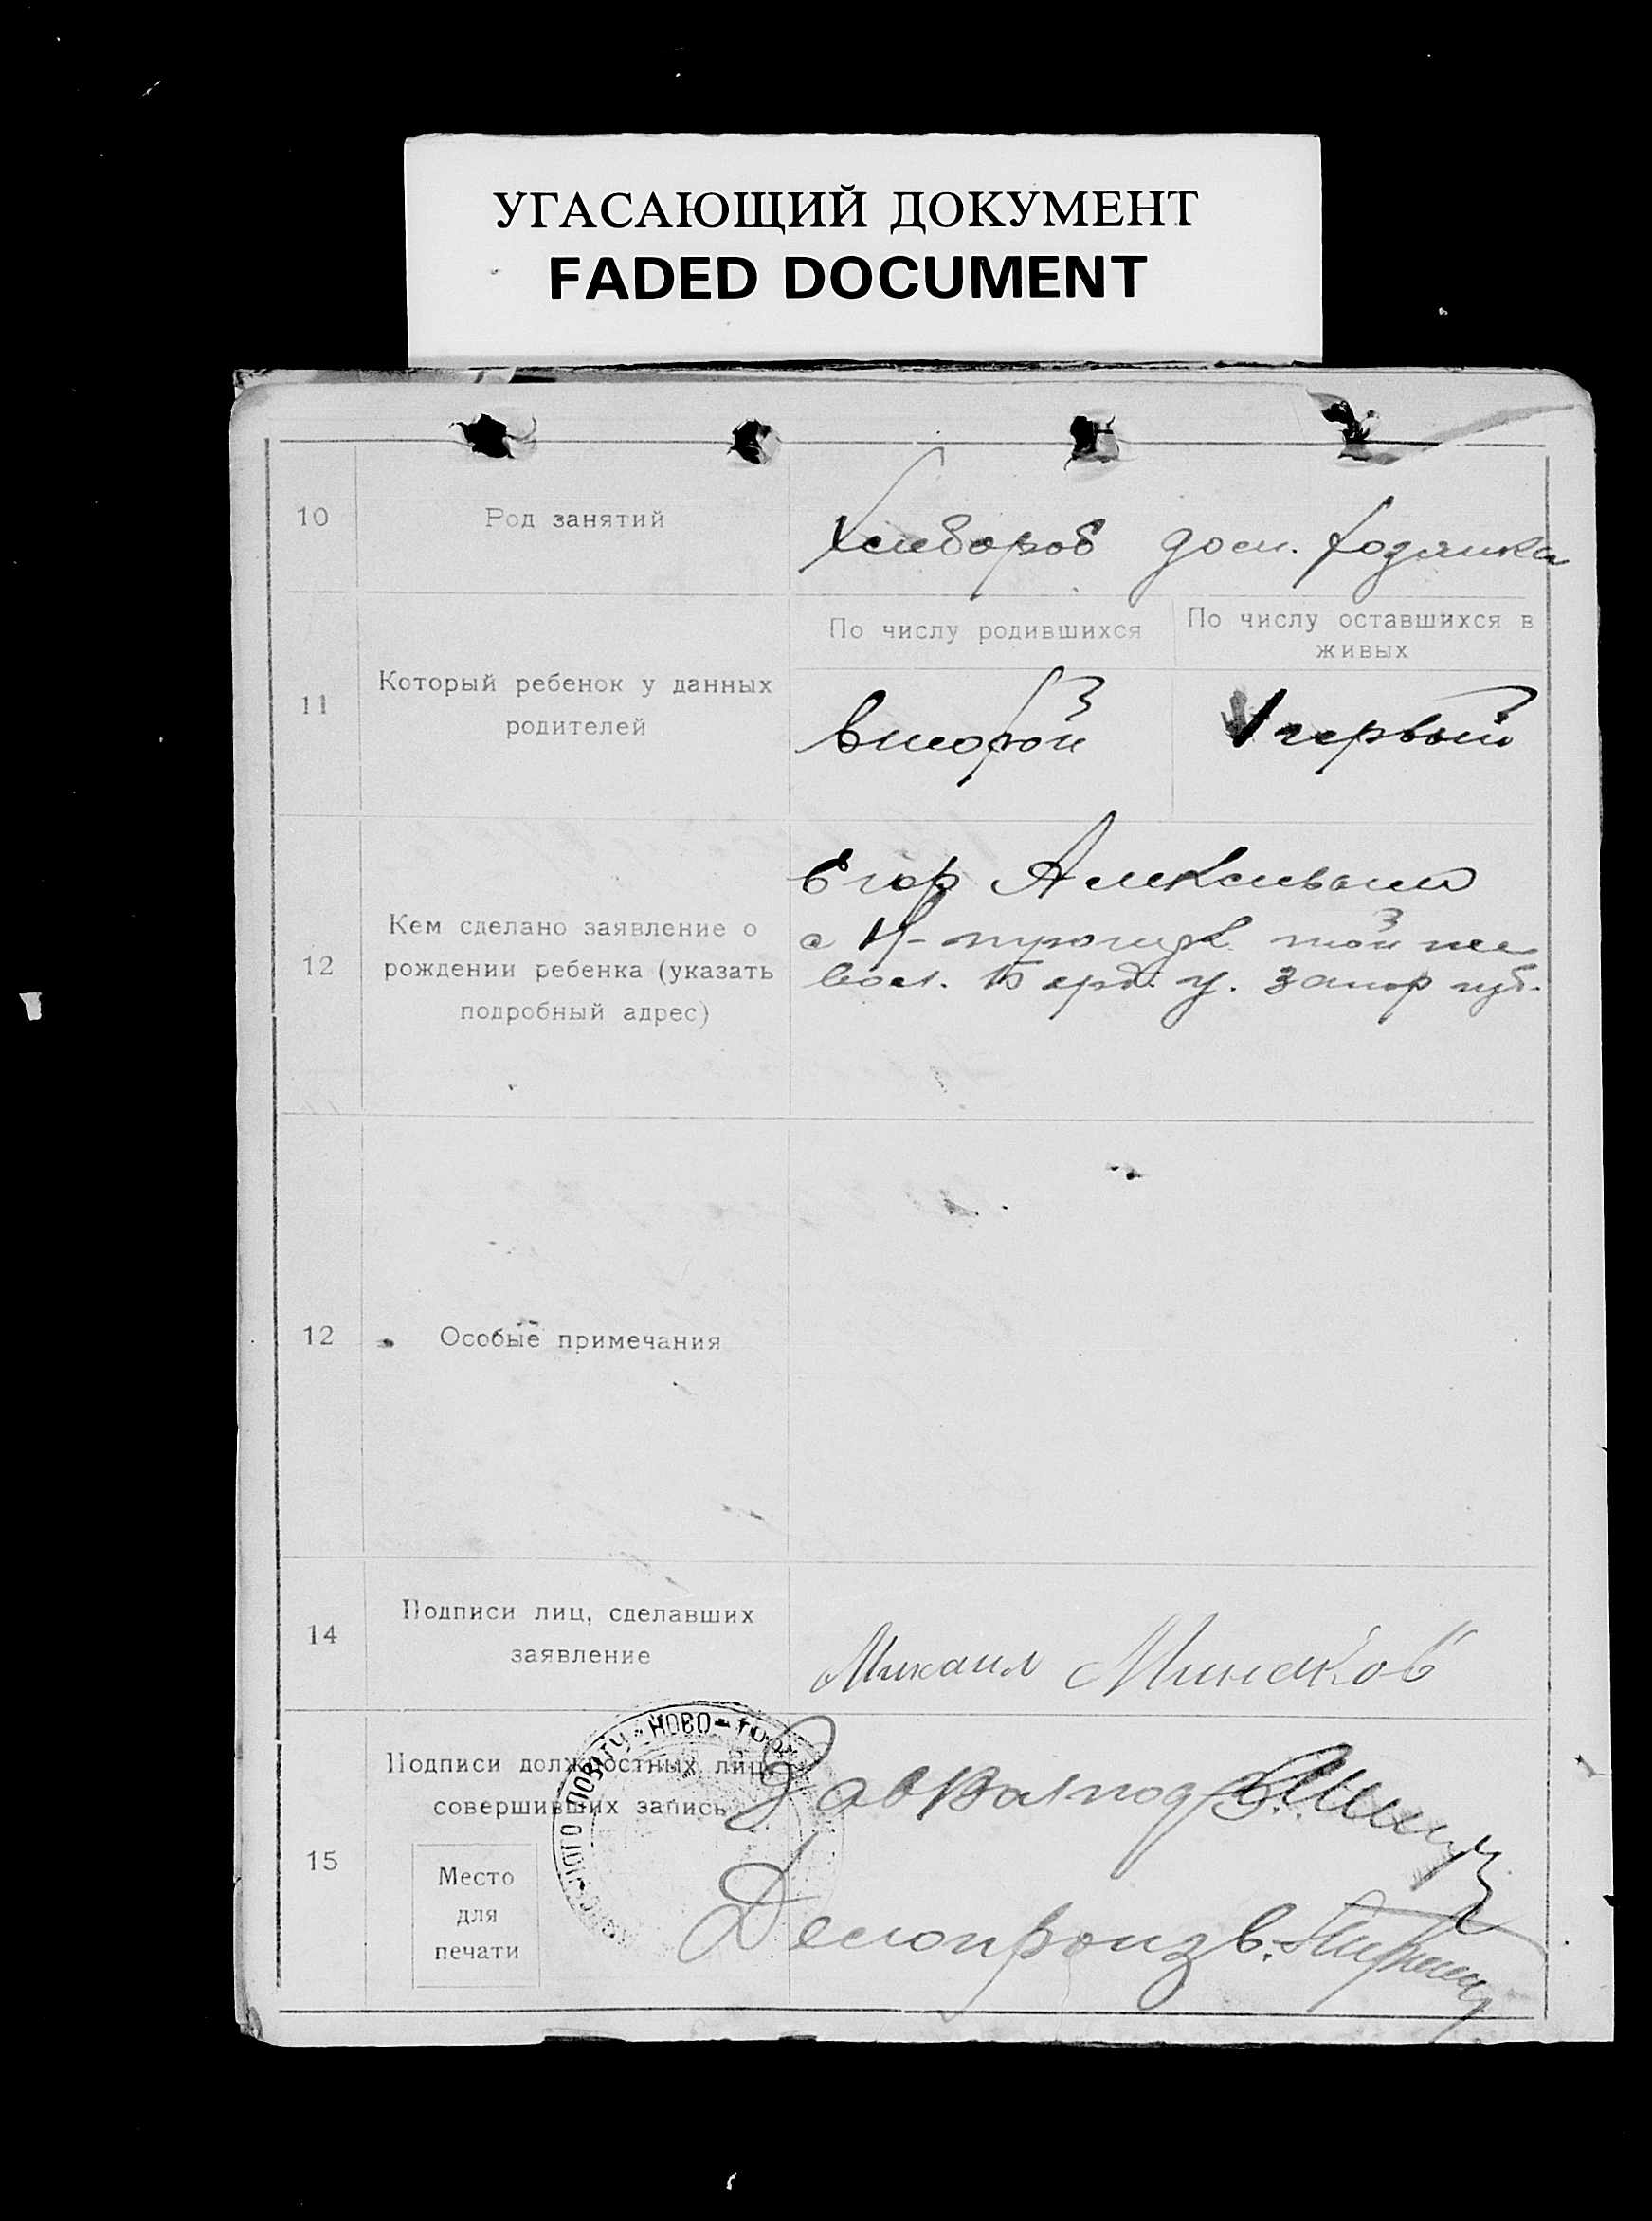 УГАСАЮЩИЙ ДОКУМЕНТ
FADED DOCUMENT
10
Род занятий
Хлебороб дом. хозяйка
11
Который ребенок у данных
родителей
По числу родившихся
второй
По числу оставшихся в
живых
первый
12
Кем сделано заявление о
рождении ребенка (указать
подробный адрес)
Егор
с Н- той же
вол. Берд. у. Запор губ.
12
Особые примечания
14
Подписи лиц, сделавших
заявление
Михаил Минаков
15
Подписи должностных лиц,
совершивших запись
Место
для
печати
Делопроизв.
НОВО-